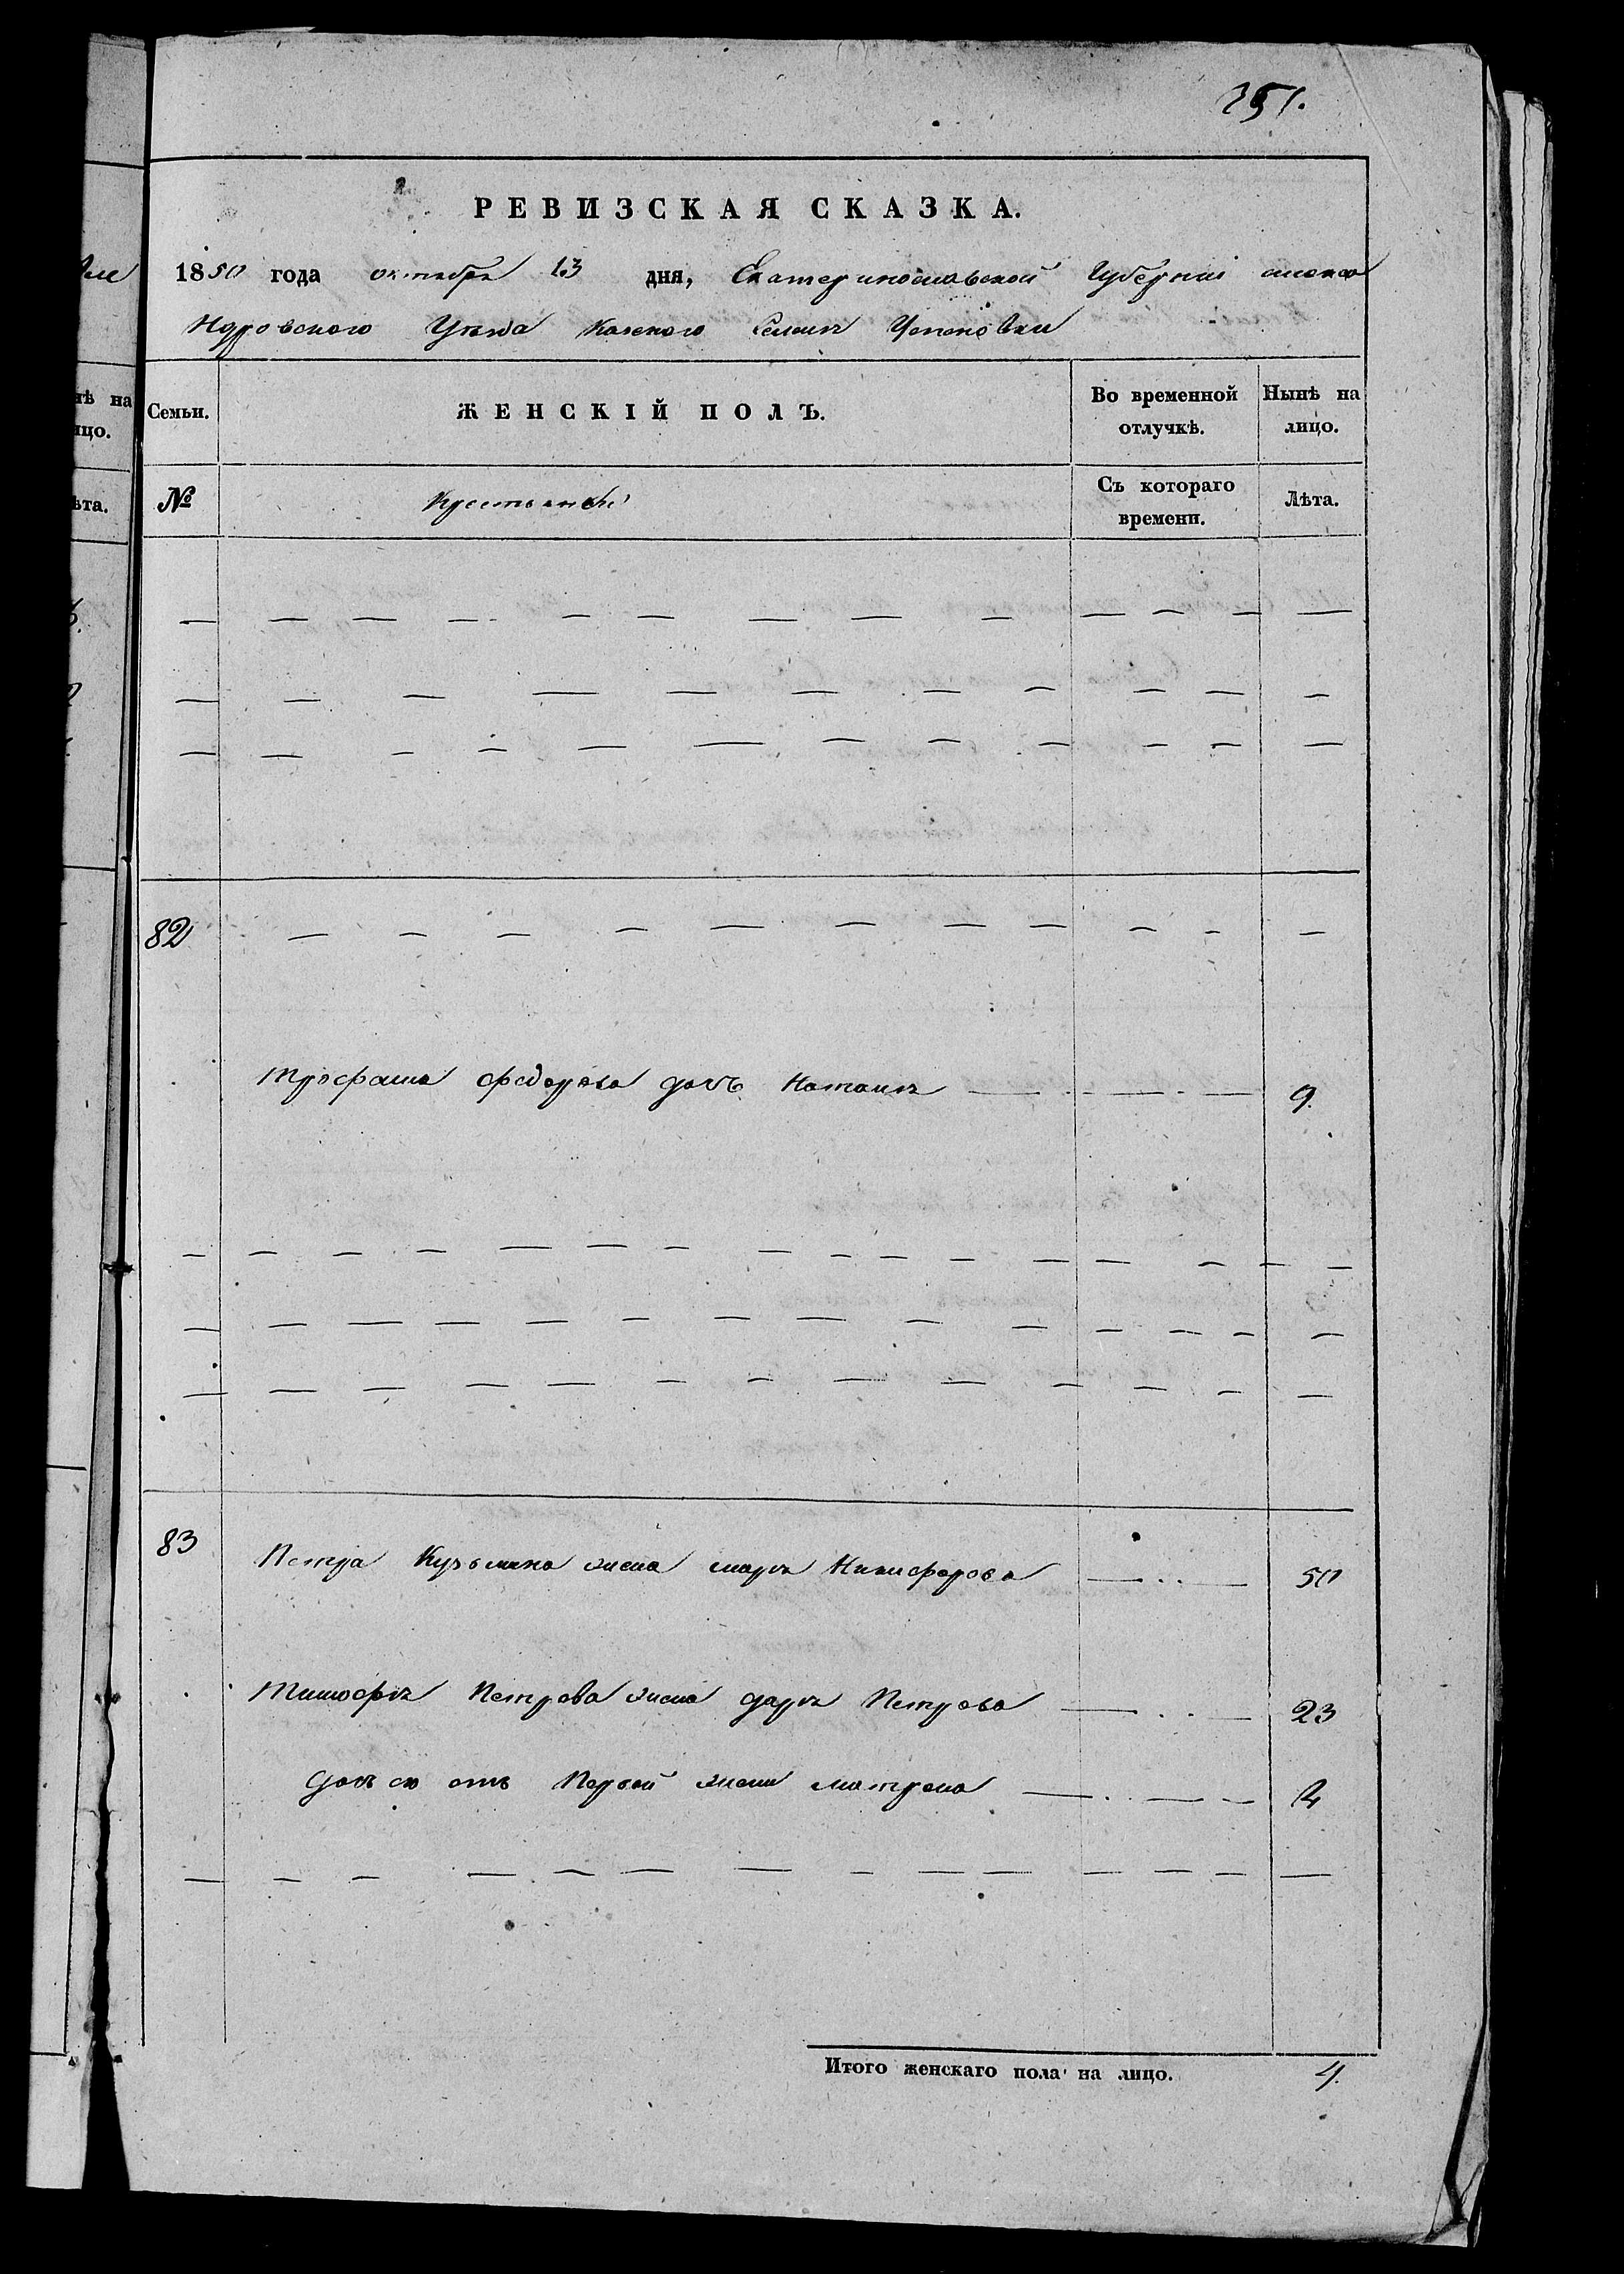 251.
РЕВИЗСКАЯ СКАЗКА.
1850 года октября 13 дня, Екатеринославской Губерніи алекса
Ндровского Уезда Казеного Селенія
Семьи. ЖЕНСКІЙ ПОЛЪ. Во временной отлучкѣ. Нынѣ на лицо.
№ Крестьянскій Съ котораго времени. Лѣта.
82
Трофима федорова дочь Наталія 9.
83 Петра Кузьмина жена марія Никифорова 50
Тимофія Петрова жена дарія Петрова 23
дочь его отъ Первой жены матрона 4
Итого женскаго пола на лицо. 4.
нѣ на
ицо.
ѣта.